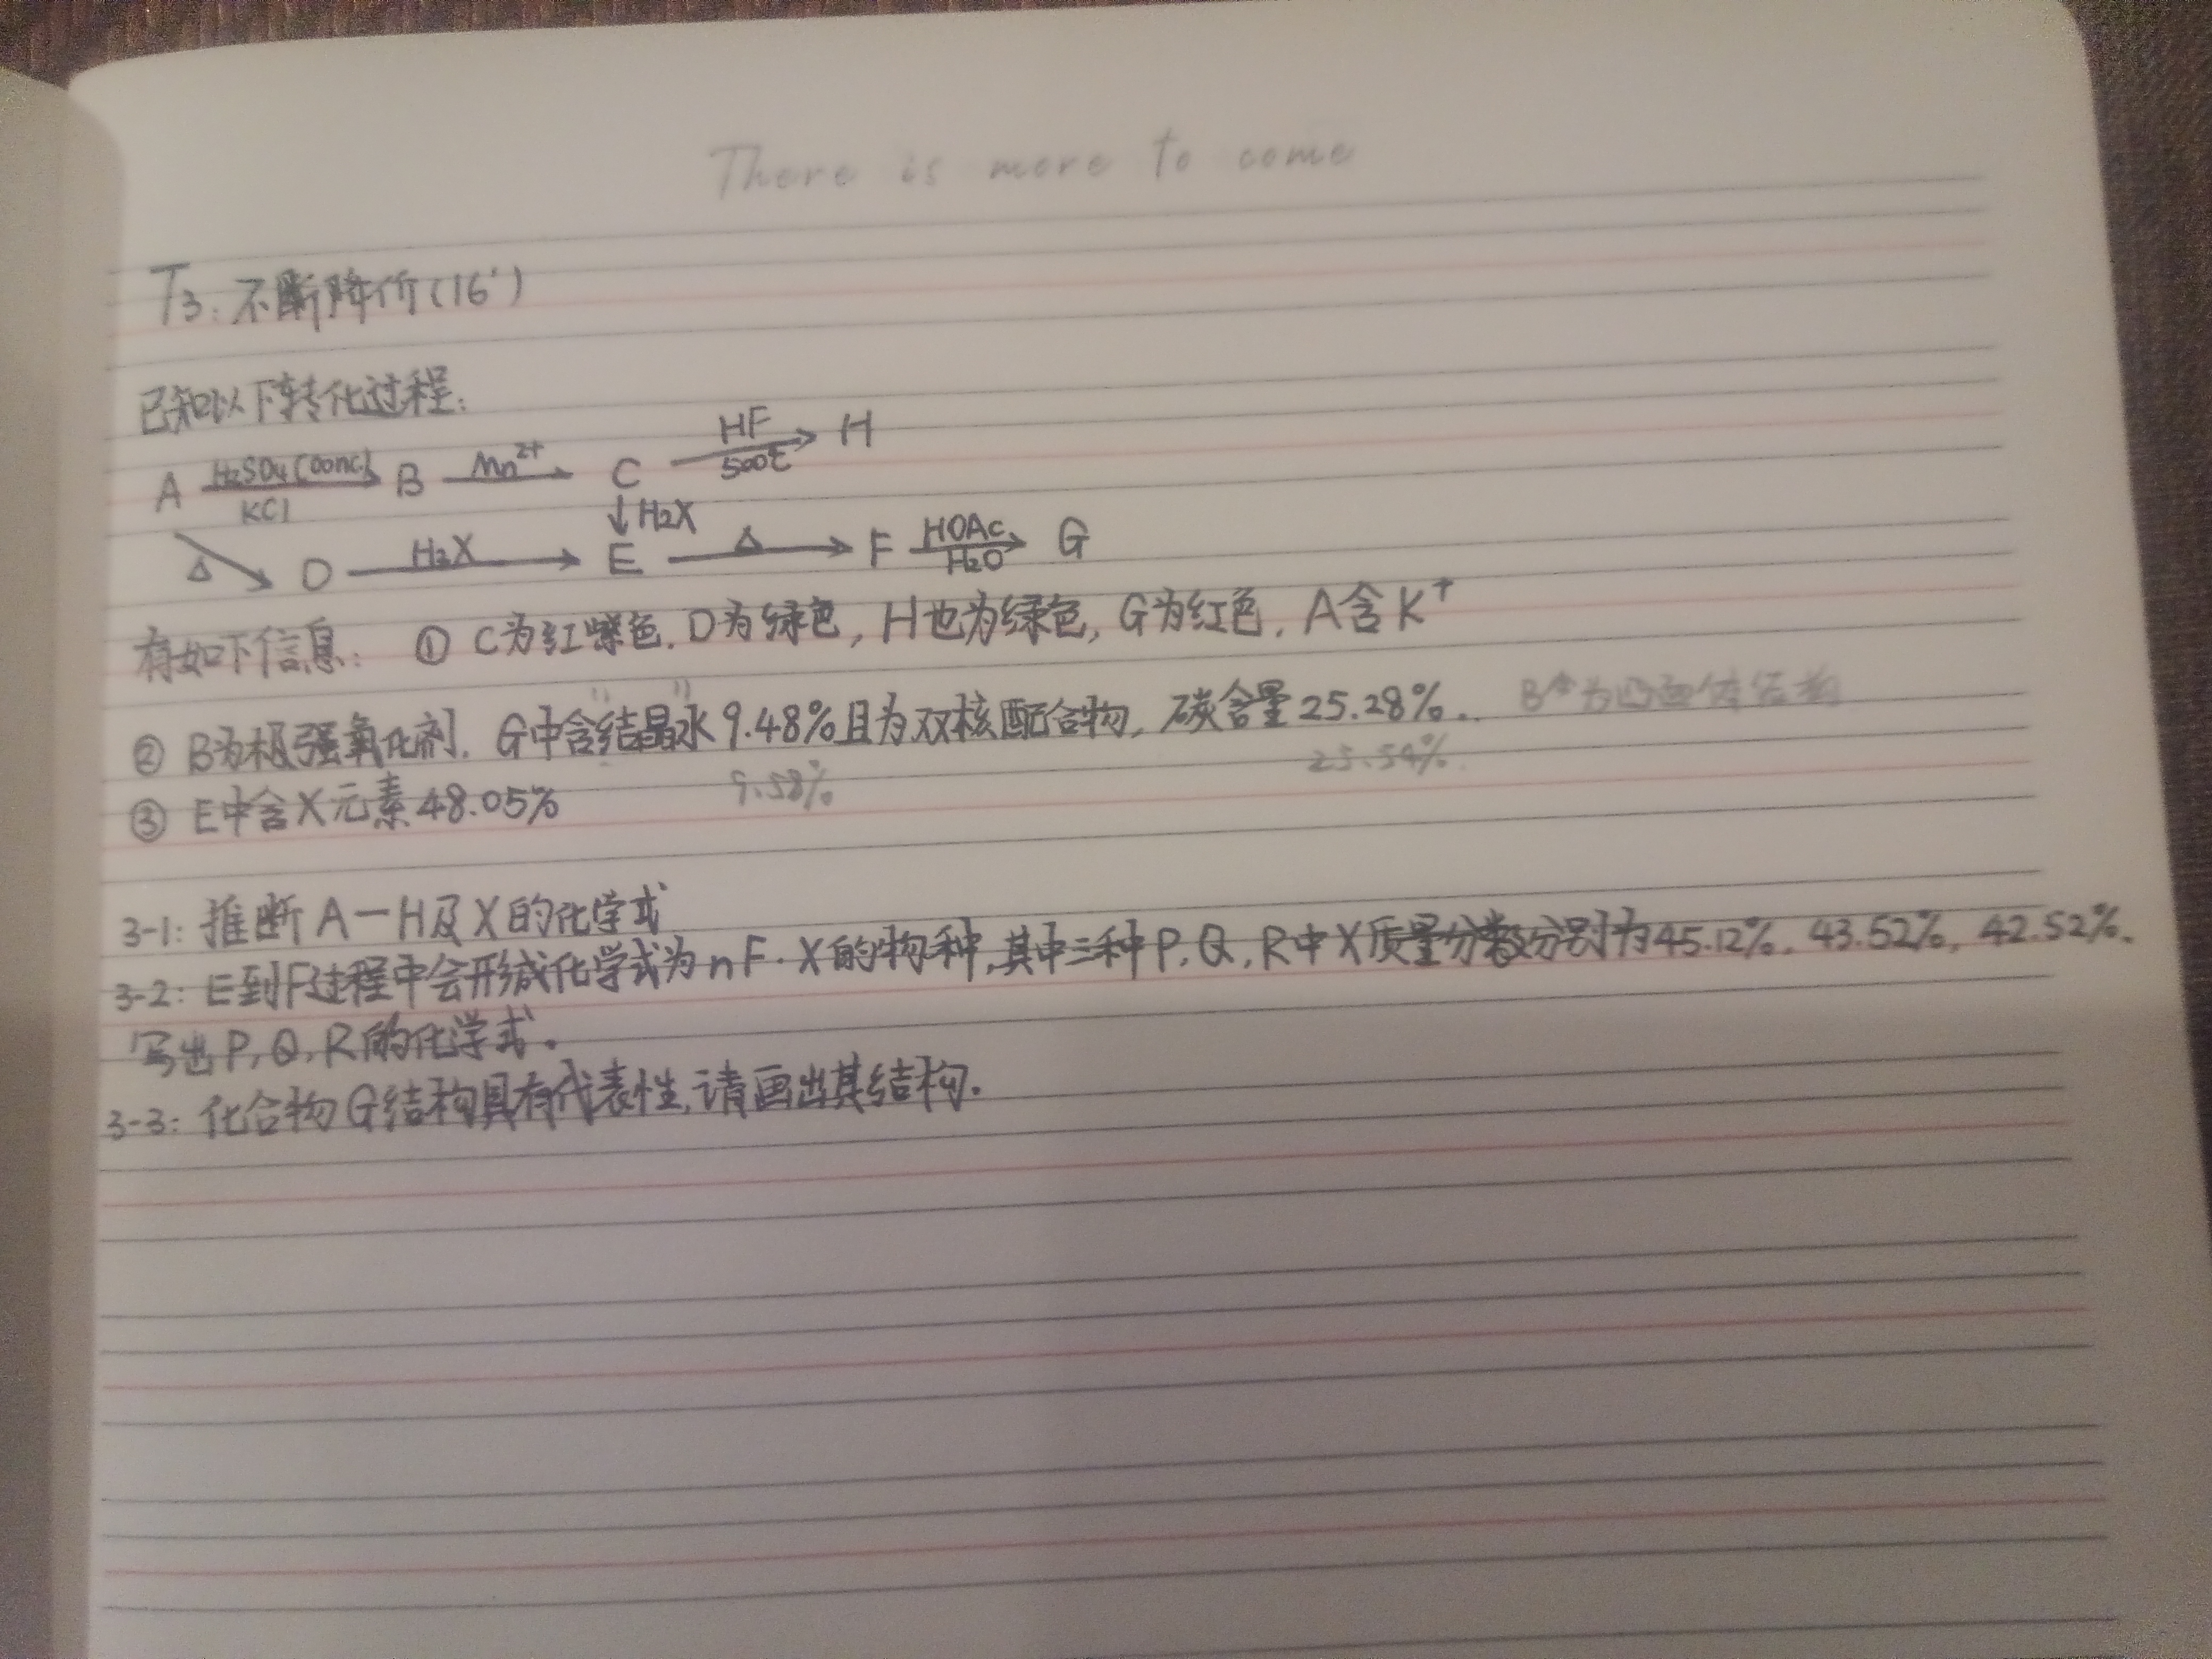 There is more to come
T3: 不断降价(16')
已知以下转化过程:
A H2SO4(conc.) KCl B Mn2+ C HF 500℃ H
↓H2X
Δ D H2X E Δ F HOAc H2O G
有如下信息: ① C为红紫色, D为绿色, H也为绿色, G为红色, A含K+
② B为极强氧化剂. G中含"结晶水"9.48%且为双核配合物, 碳含量25.28%. B中为四面体结构
9.58% 25.54%.
③ E中含X元素48.05%
3-1: 推断A—H及X的化学式
3-2: E到F过程中会形成化学式为nF·X的物种,其中三种P,Q,R中X质量分数分别为45.12%, 43.52%, 42.52%.
写出P,Q,R的化学式.
3-3: 化合物G结构具有代表性,请画出其结构.